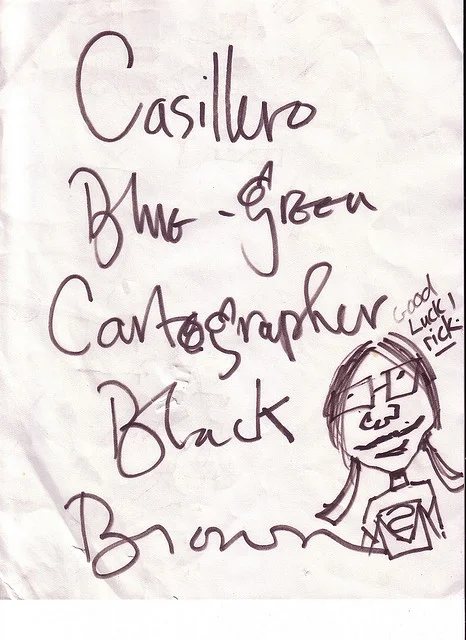 Casillero
Blue-Green
Cartographer
Black
Brown
Good
Luck!
rick.